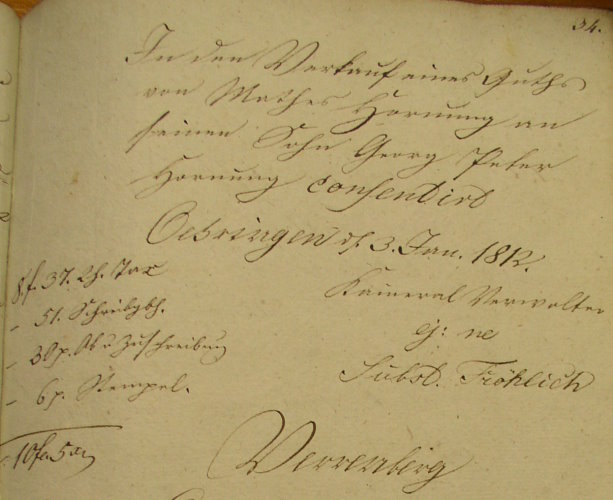 34.
In den Verkauf eines Guths
von Mathes Hornung an
seinen Sohn Georg Peter
Hornung consentirt
Oehringen d. 3. Jan. 1812.
Kameral Verwalter
ej: ne
Subst. Fröhlich
8 f. 37. Tax
- 51. Schreibgbh.
- 30 Ab u Zuschreibung
- 6 Stempel.
10 f
Verrenberg